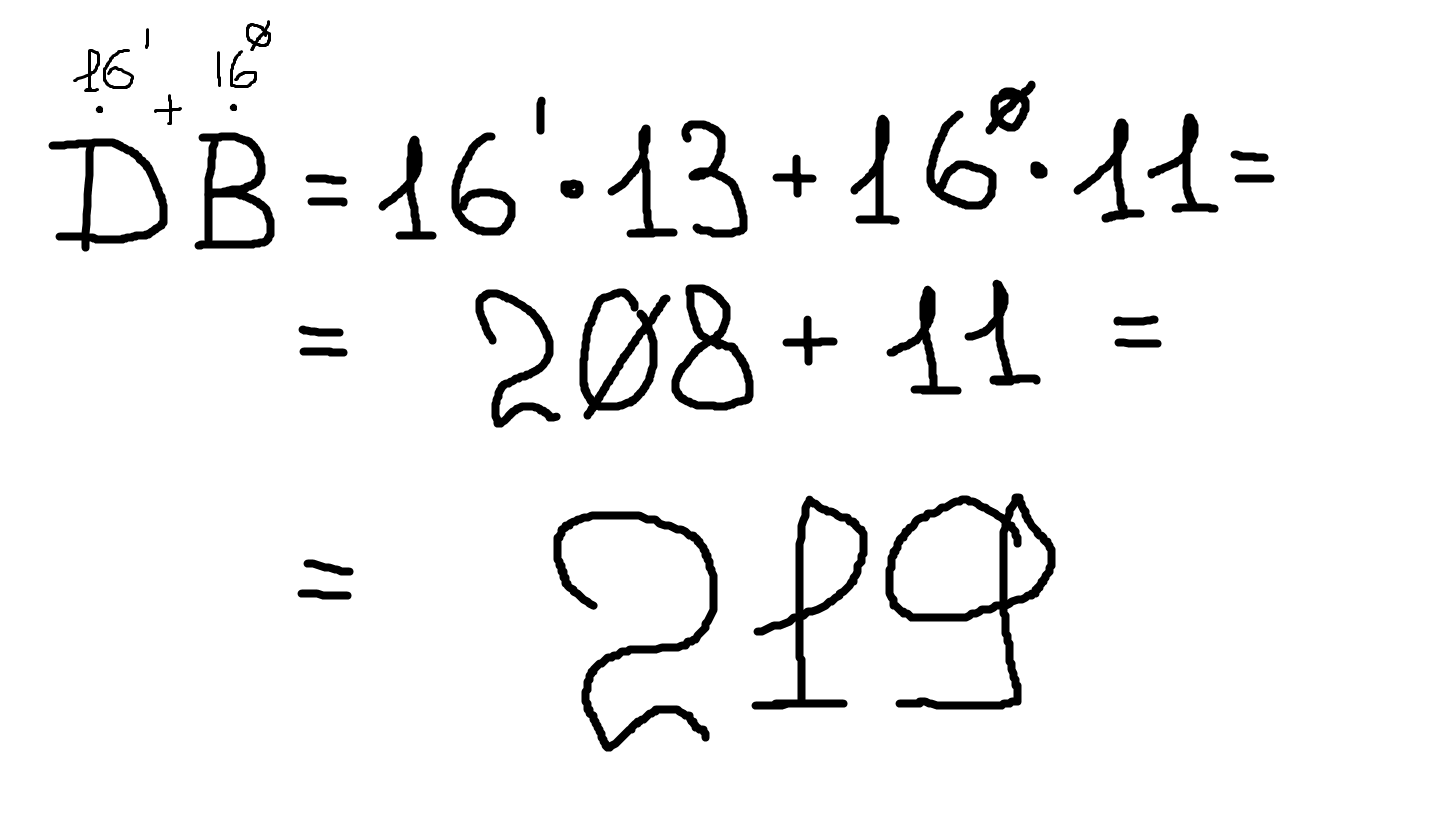 16¹ + 16⁰
DB = 16¹ · 13 + 16⁰ · 11 =
= 208 + 11 =
= 219